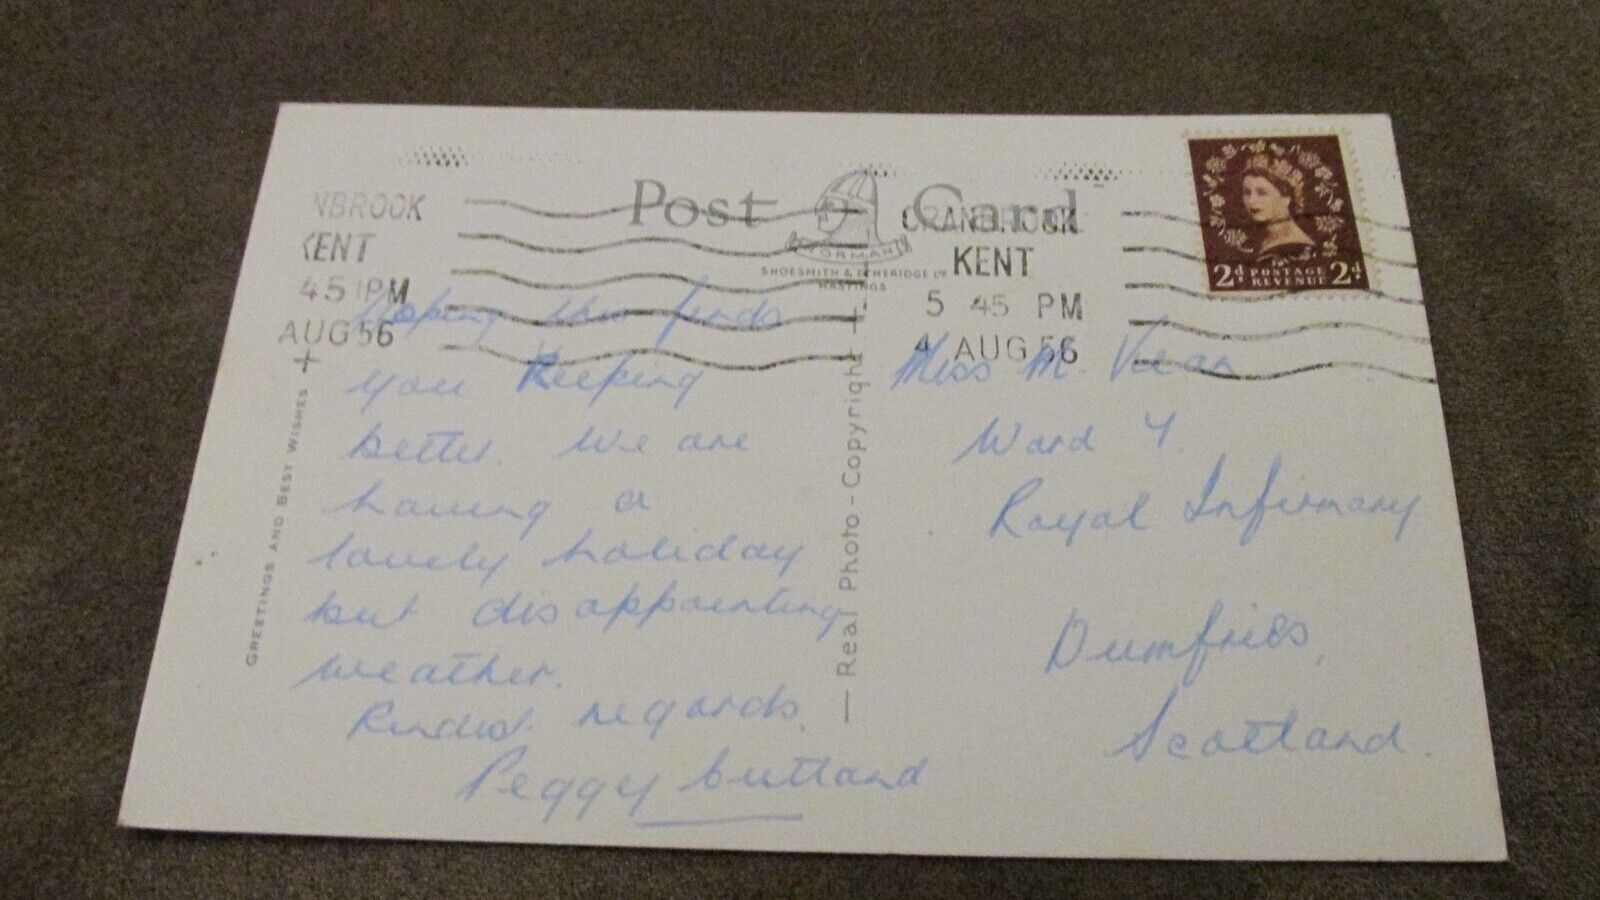 Post Card
NORMAN
SHOESMITH & ETHERIDGE LTD
HASTINGS
NBROOK
KENT
45 PM
AUG 56
CRANBROOK
KENT
5 45 PM
4 AUG 56
2D POSTAGE REVENUE 2D
GREETINGS AND BEST WISHES
Real Photo - Copyright
Hoping this finds
you Keeping
better. We are
having a
lovely holiday
but disappointing
weather.
Kindest regards.
Peggy
Miss M.
Ward 4.
Royal Infirmary
Dumfries,
Scotland.